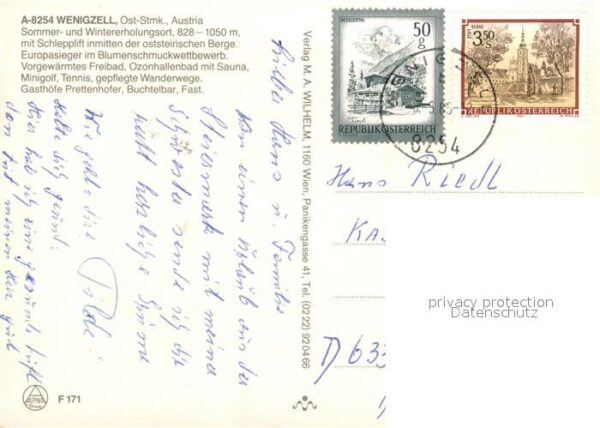 A-8254 WENIGZELL, Ost-Stmk., Austria
Sommer- und Wintererholungsort, 828 – 1050 m,
mit Schlepplift inmitten der oststeirischen Berge.
Europasieger im Blumenschmuckwettbewerb.
Vorgewärmtes Freibad, Ozonhallenbad mit Sauna,
Minigolf, Tennis, gepflegte Wanderwege.
Gasthöfe Prettenhofer, Buchtelbar, Fast.
Lieber Hans u. Familie
von einem Urlaub aus der
Steiermark mit meiner
Schwester sende ich dir
recht herzliche Grüße
Tilde!
Wie geht's dir?
Hier hab ich eine gesunde Luft
den tut meinen gut
F 171
Verlag M. A. WILHELM, 1160 Wien, Panikengasse 41, Tel. (0222) 920466
50
g
REPUBLIK ÖSTERREICH
3.50
REPUBLIK ÖSTERREICH
8254
Hans Riedl
KA
D 633
privacy protection
Datenschutz